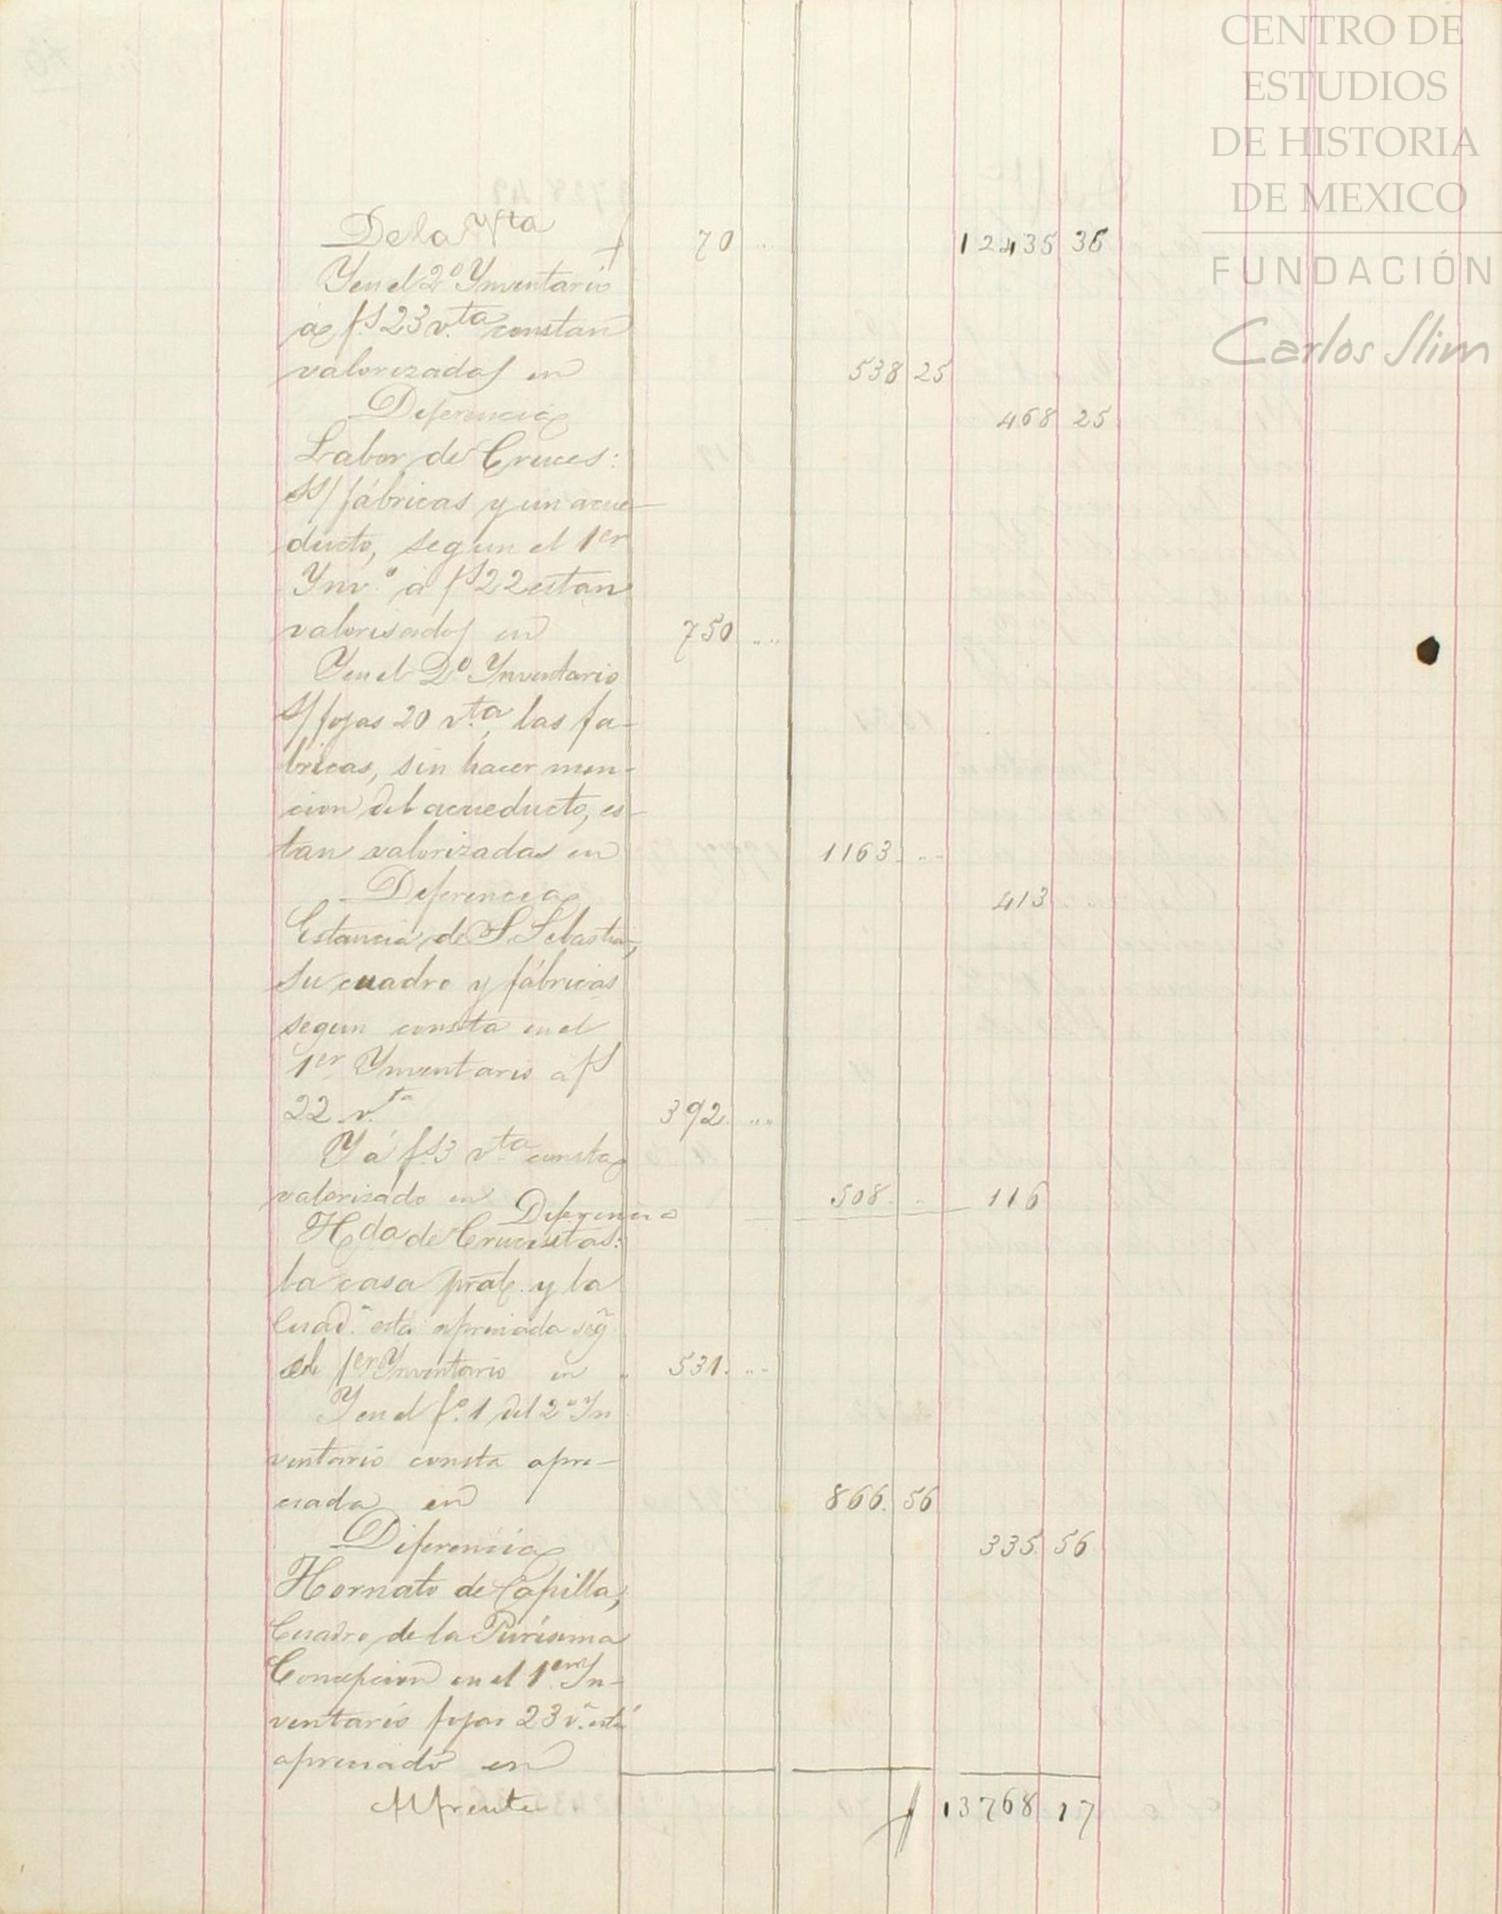 CENTRO DE
ESTUDIOS
DE HISTORIA
DE MEXICO
FUNDACIÓN
Carlos Slim
De la Vta 70 .. 12435 36
Y en el 2º Ynventario
á fs 23 v.ta constan
valorizados en 538 25
Diferencia 468 25
Labor de Cruces:
Ss/ fábricas y un acue-
ducto, segun el 1er
Ynv.º á fs 22 estan
valorisados en 750 ....
Y en el 2º Ynventario
S/ fojas 20 v.ta, las fa-
bricas, sin hacer men-
cion del acueducto, es-
tan valorizadas en 1163 ....
Diferencia 413 ..
Estancia de S. Sebastian,
su cuadro y fábricas
segun consta en el
1er Ynventario á fs
22 v.ta 392 ....
Y á fs 3 vta consta
valorizado en 508 ..
Diferencia 116
Hda de Crucesitas:
la casa pral. y la
Cuad.ª está apreciada seg.
el 1er Ynventario en 531. ...
Y en el fº. 1 del 2º Yn
ventario consta apre-
ciada en 866. 56
Diferencia 335 56
Hornato de Capilla,
Cuadro de la Purísima
Concepcion en el 1er Yn-
ventario fojas 23 v.ª está
apreciado en
Al frente 13768 17